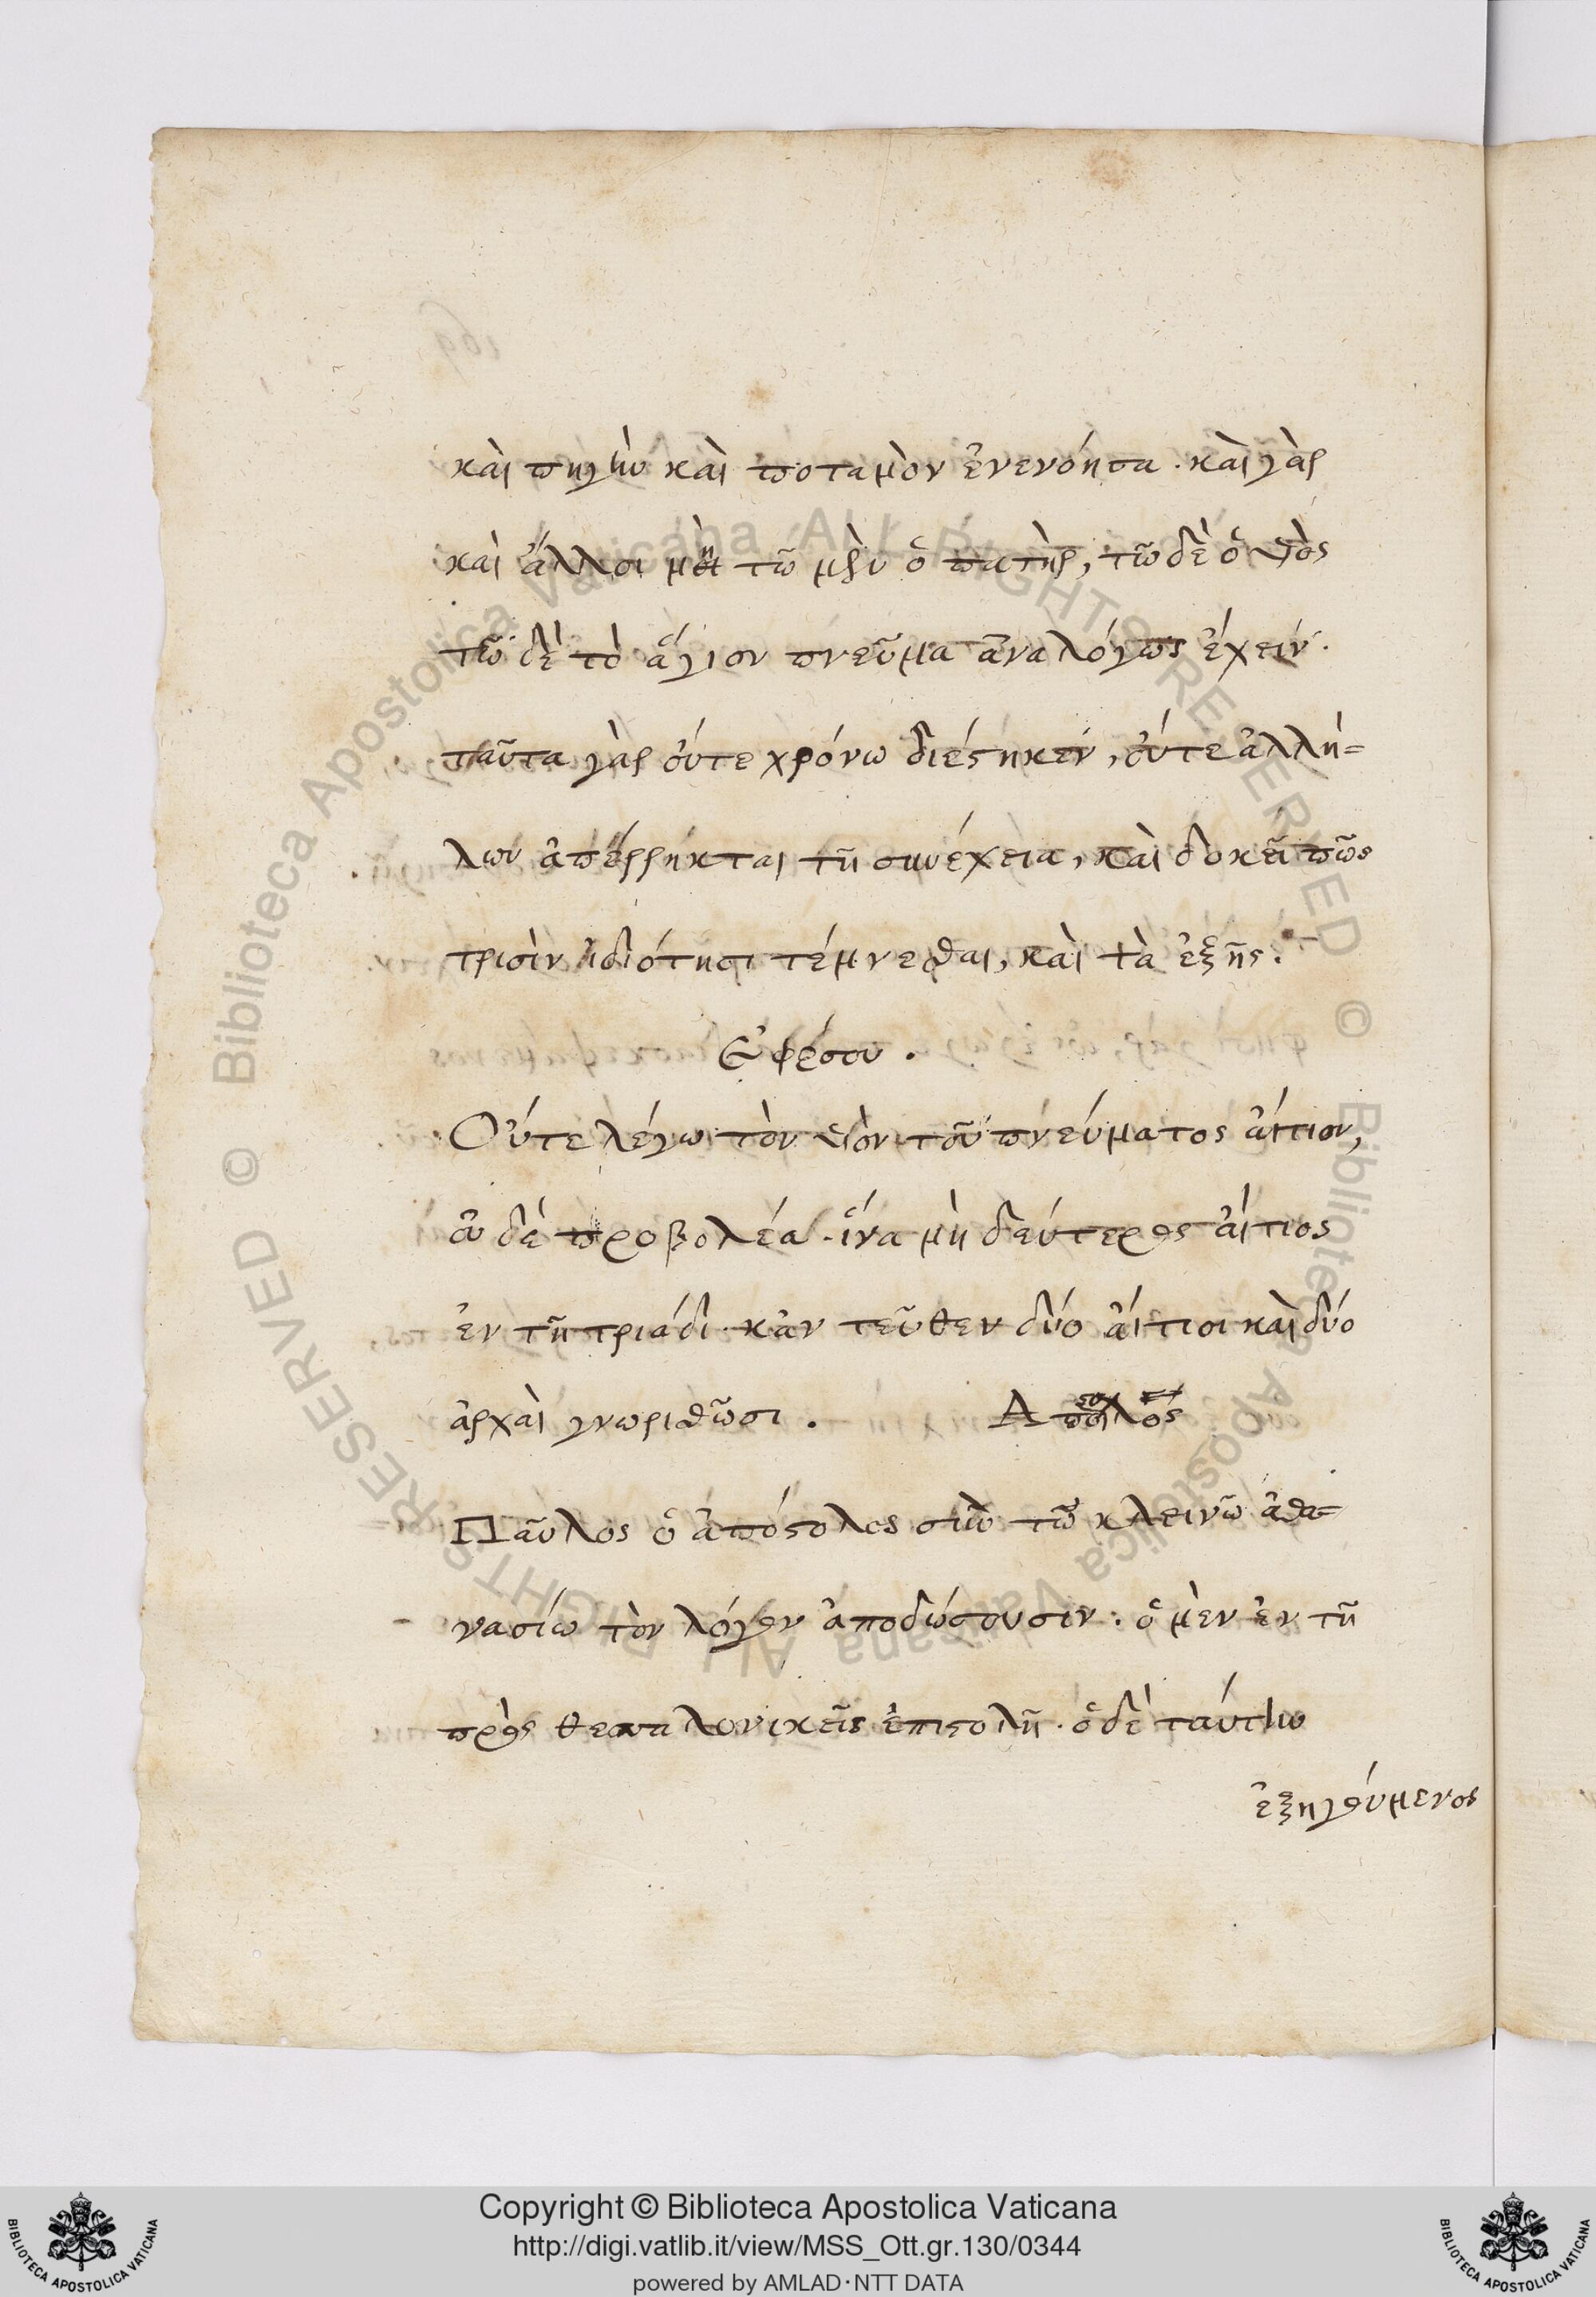 καὶ πηγὴν καὶ ποταμὸν ἐνενόησα. καὶ γὰρ
καὶ ἄλλοι μὴ τῶ μὲν ὁ πατὴρ, τῶ δὲ ὁ υἱὸς
τῶ δὲ τὸ ἅγιον πνεῦμα ἀναλόγως ἔχειν.
ταῦτα γὰρ οὔτε χρόνω διέστηκεν, οὔτε ἀλλή=
λων ἀπέρρηκται τῆ συνέχεια, καὶ δοκεῖ πῶς
τρισὶν ἰδιότησι τέμνεσθαι, καὶ τὰ ἑξῆς.
Ἐφέσου.
Οὔτε λέγω τὸν υἱὸν τοῦ πνεύματος αἴτιον,
οὐ δὲ προβολέα. ἵνα μὴ δεύτερος αἴτιος
ἐν τῆ τριάδι. κἀν τεῦθεν δύο αἴτιοι καὶ δύο
ἀρχαὶ γνωρισθῶσι.
Παῦλος ὁ ἀπόστολος σὺν τῶ κλεινῶ ἀθα=
νασίω τὸν λόγον ἀποδώσουσιν. ὁ μὲν ἐν τῆ
πρὸς θεσσαλονικεῖς ἐπιστολῆ. ὁ δὲ ταύτην
ἐξηγούμενος
© Biblioteca Apostolica Vaticana ALL RIGHTS RESERVED
© Biblioteca Apostolica Vaticana ALL RIGHTS RESERVED
Copyright © Biblioteca Apostolica Vaticana
http://digi.vatlib.it/view/MSS_Ott.gr.130/0344
powered by AMLAD·NTT DATA
BIBLIOTECA APOSTOLICA VATICANA
BIBLIOTECA APOSTOLICA VATICANA